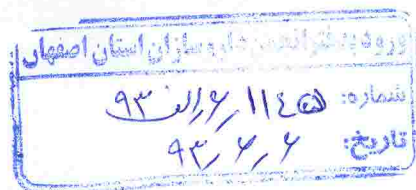 ورود به دفتر انجمن داروسازان استان اصفهان
شماره: ۱۱٤۵/۶/الف/۹۳
تاریخ: ۹۳/۶/۶